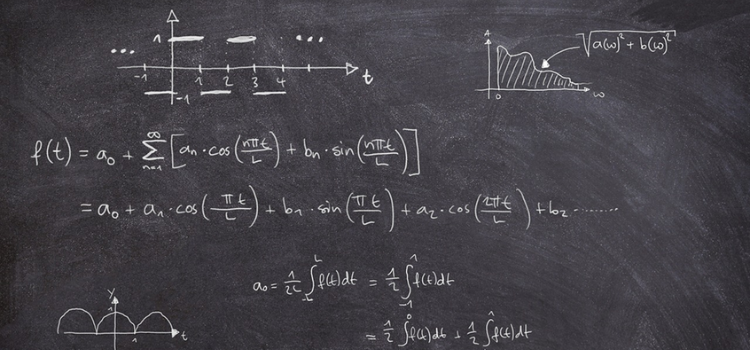 1
... ...
-1 1 2 3 4 t
-1
A
√(a(ω)² + b(ω)²)
0 ω
f(t) = a₀ + ∑ₙ₌₁^∞ [aₙ·cos(nπt/L) + bₙ·sin(nπt/L)]
= a₀ + a₁·cos(πt/L) + b₁·sin(πt/L) + a₂·cos(2πt/L) + b₂.........
a₀ = 1/2L ∫₋L^L f(t)dt = 1/2 ∫₋₁^1 f(t)dt
y
1
1 t
= 1/2 ∫₋₁^0 f(t)dt + 1/2 ∫^1 f(t)dt